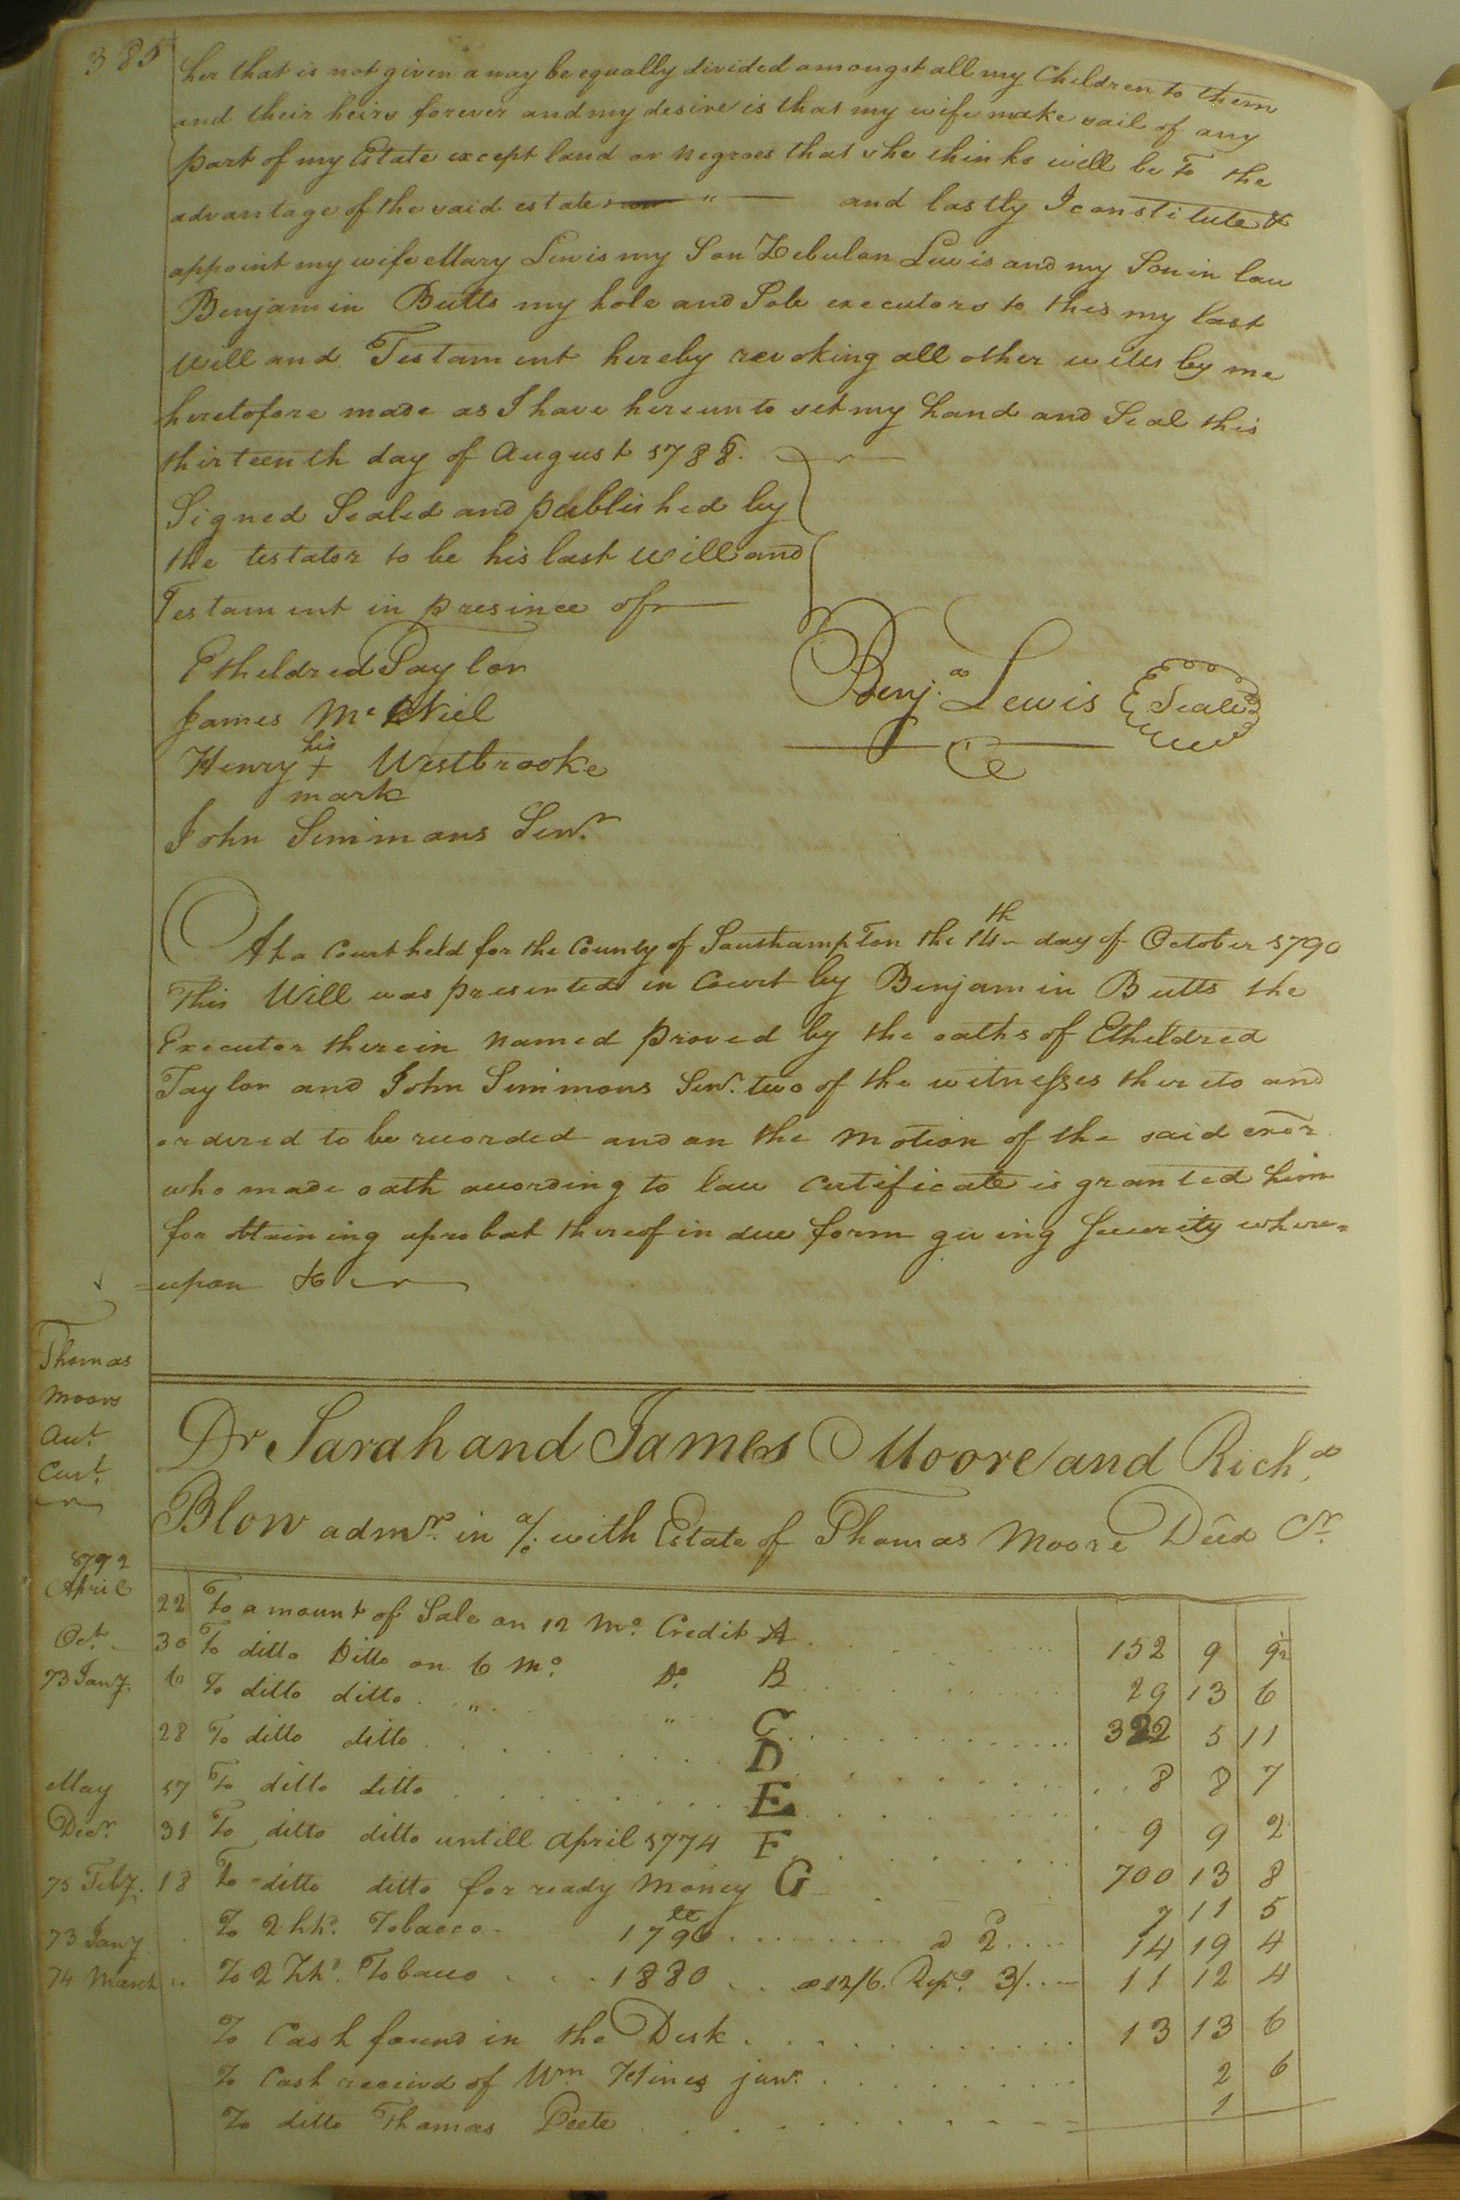 385
her that is not given away be equally divided amongst all my Children to them
and their heirs forever and my desire is that my wife make sail of any
part of my Estate except land or negroes that she thinks will be to the
advantage of the said estate " and lastly I constitute &
appoint my wife Mary Lewis my Son Zebulon Lewis and my Son in law
Benjamin Butts my hole and Sole executors to this my last
Will and Testament hereby revoking all other wills by me
heretofore made as I have hereunto set my hand and Seal this
thirteenth day of August 1788.
Signed Sealed and published by
the testator to be his last Will and
Testament in presince of
Etheldred Taylor
James McNiel
Benj.a Lewis Seal
his
Henry + Westbrooke
mark
John Simmons Senr.
At a Court held for the County of Southampton the 14th day of October 1790
This Will was presented in Court by Benjamin Butts the
Executor therein named proved by the oaths of Etheldred
Taylor and John Simmons Senr. two of the witnesses thereto and
ordered to be recorded and on the motion of the said exor
who made oath according to law Certificate is granted him
for obtaining aprobat thereof in due form giving Security where=
=upon &c
Thomas
Moors
Aut.
Curt.
Dr Sarah and James Moore and Rich.d
Blow admr. in a/c with Estate of Thomas Moore Decd Cr.
1792
April 22 To amount of Sale on 12 Mo. Credit A 152 9 9½
Oct. 30 To ditto Ditto on 6 Mo. Do. B 29 13 6
73 Jany. 6 To ditto ditto " " C 322 5 11
28 To ditto ditto D 8 8 7
May 17 To ditto ditto E 9 9 2
Decr. 31 To ditto ditto untill April 1774 F 700 13 8
75 Feby. 18 To ditto ditto for ready Money G 7 11 5
73 Jany To 2 hhd. Tobacco 1790 a 2 14 19 4
74 March To 2 hhd. Tobacco 1880 a 12/6. 3/ 11 12 4
To Cash found in the Desk 13 13 6
To Cash receivd of Wm Hines junr. 2 6
To ditto Thomas Peete 1